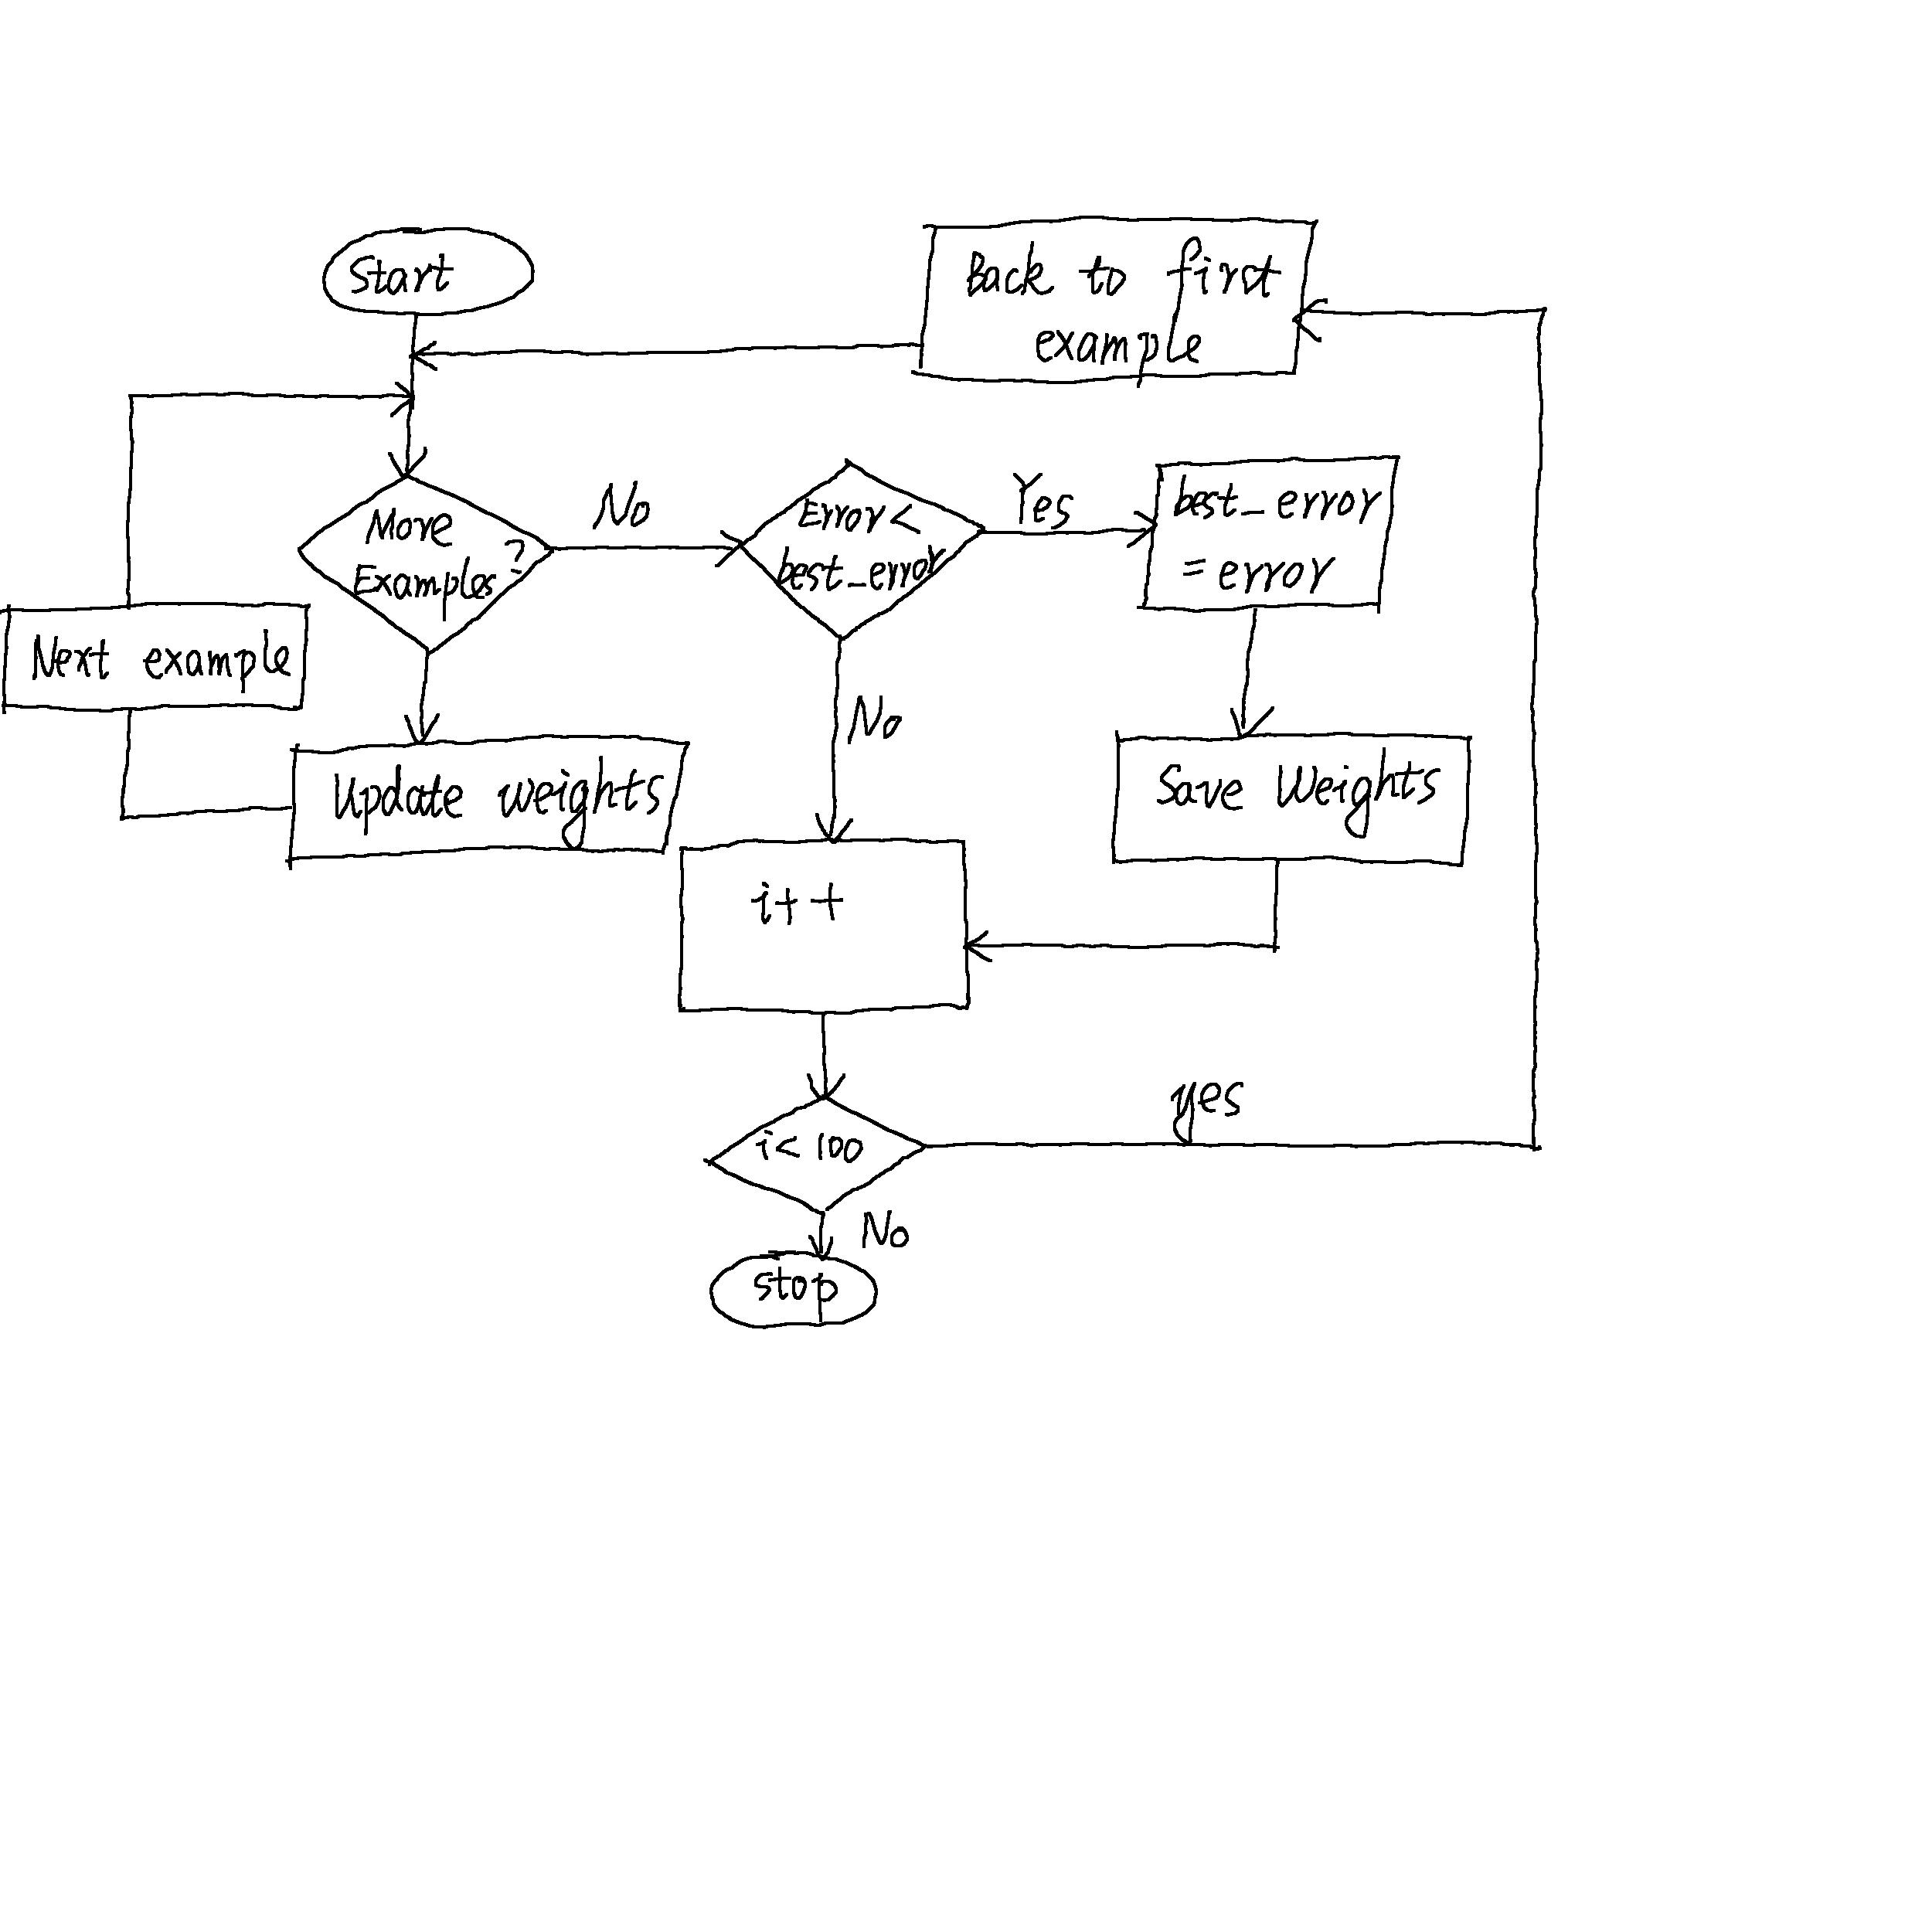 Start
Back to first
example
More
Examples?
No
Error<
best_error
Yes
best_error
= error
Next example
Update weights
No
Save Weights
i++
i< 100
yes
No
stop